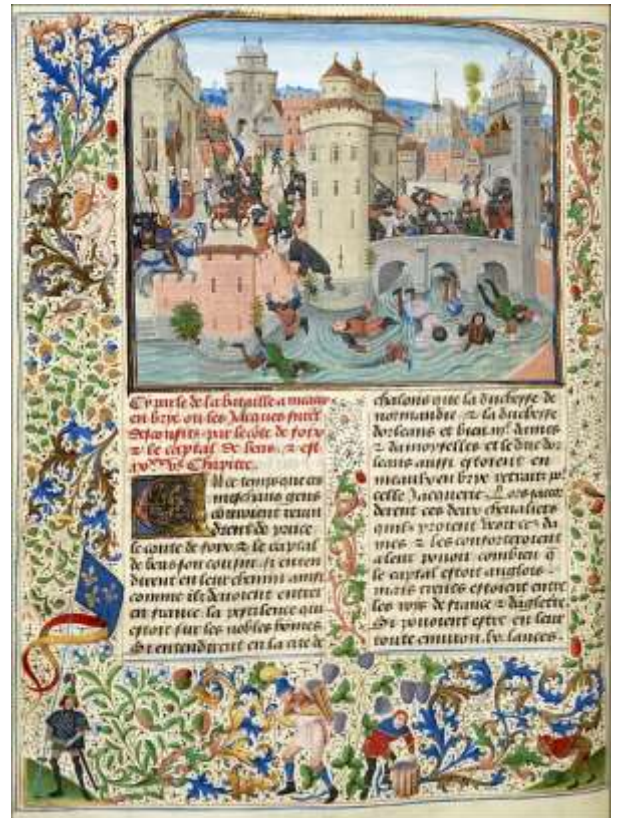 Cy parle de la bataille a meaux
en brye ou les Jacques furēt
desconfits par le cōte de foix
⁊ le captal de beus ⁊ est
Chapitre.
En ce temps que ces
meschans gens
couroient reuin
drent de pruce
le conte de foix ⁊ le captal
de beus son cousin. si enten
dirent en leur chemin ainsi
comme ilz deuoient entrer
en france la pestilence qui
estoit sur les nobles hōmes
Si entendirent en la cite de
chalons que la duchesse de
normandie ⁊ la duchesse
dorleans et bien dames
⁊ damoyselles et le duc dor
leans aussi estoient en
meaulx en brye retraits po᷑
celle Jacquerie. Lors
derent ces deux cheualiers
quilz yroient veoir ces da
mes ⁊ les conforteroient
a leur pouoir combien q̄
le captal estoit anglois.
mais treues estoient entre
les roys de france ⁊ dāgleterre
Si pouoient estre en leur
route enuiron lx lances.